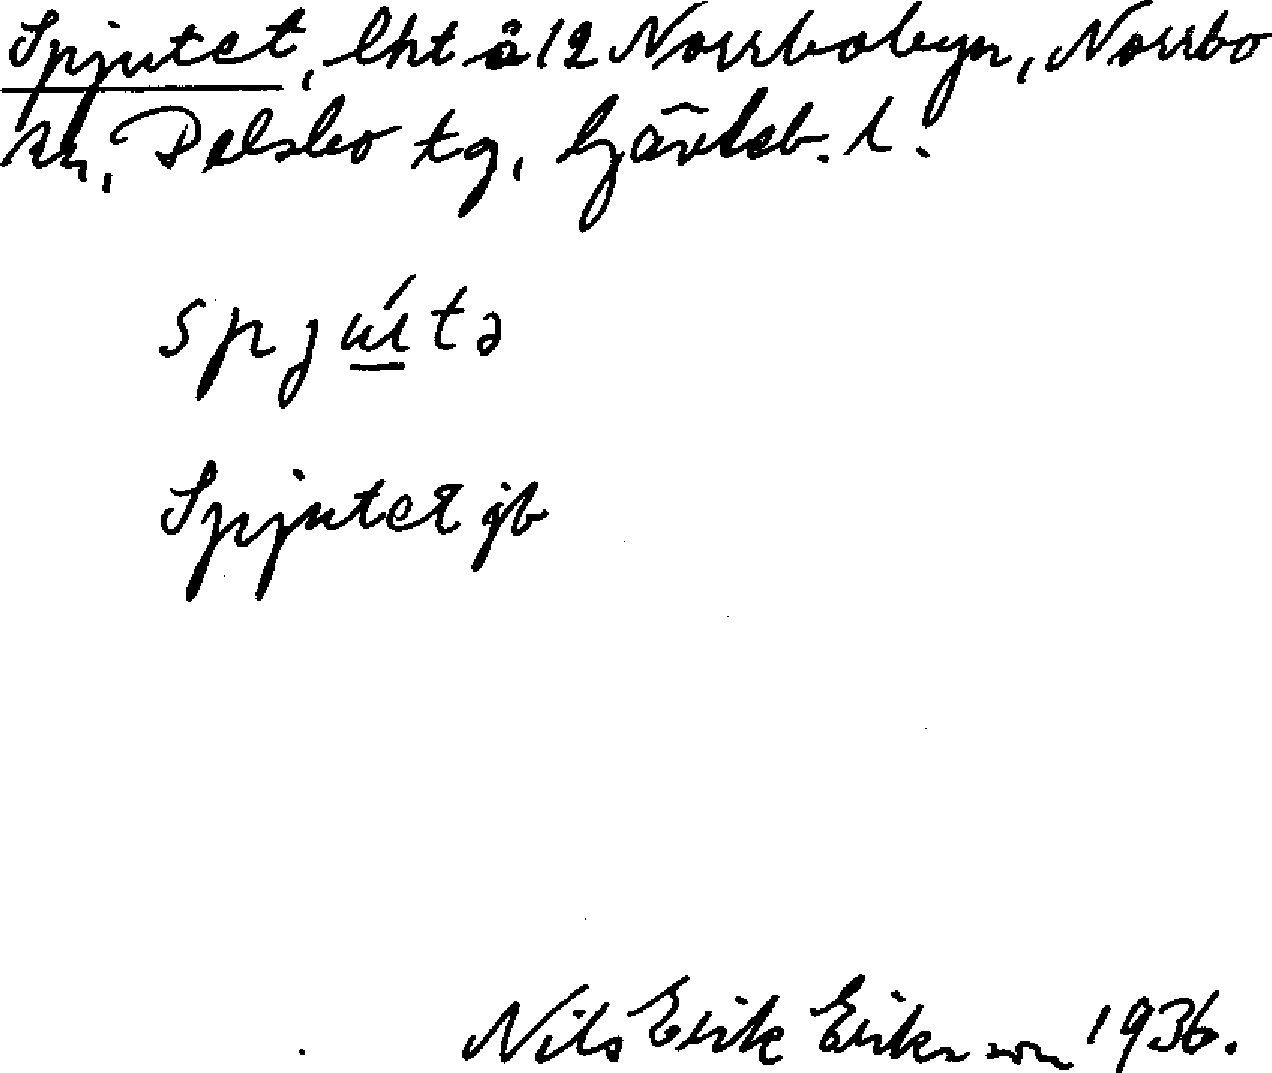 Spjutet, lht å 12 Norrbobyn, Norrbo
sn, Delsbo tg, Gävleb. l.
spjú̲tə
Spjutet jb
Nils Erik Eriksson 1936.